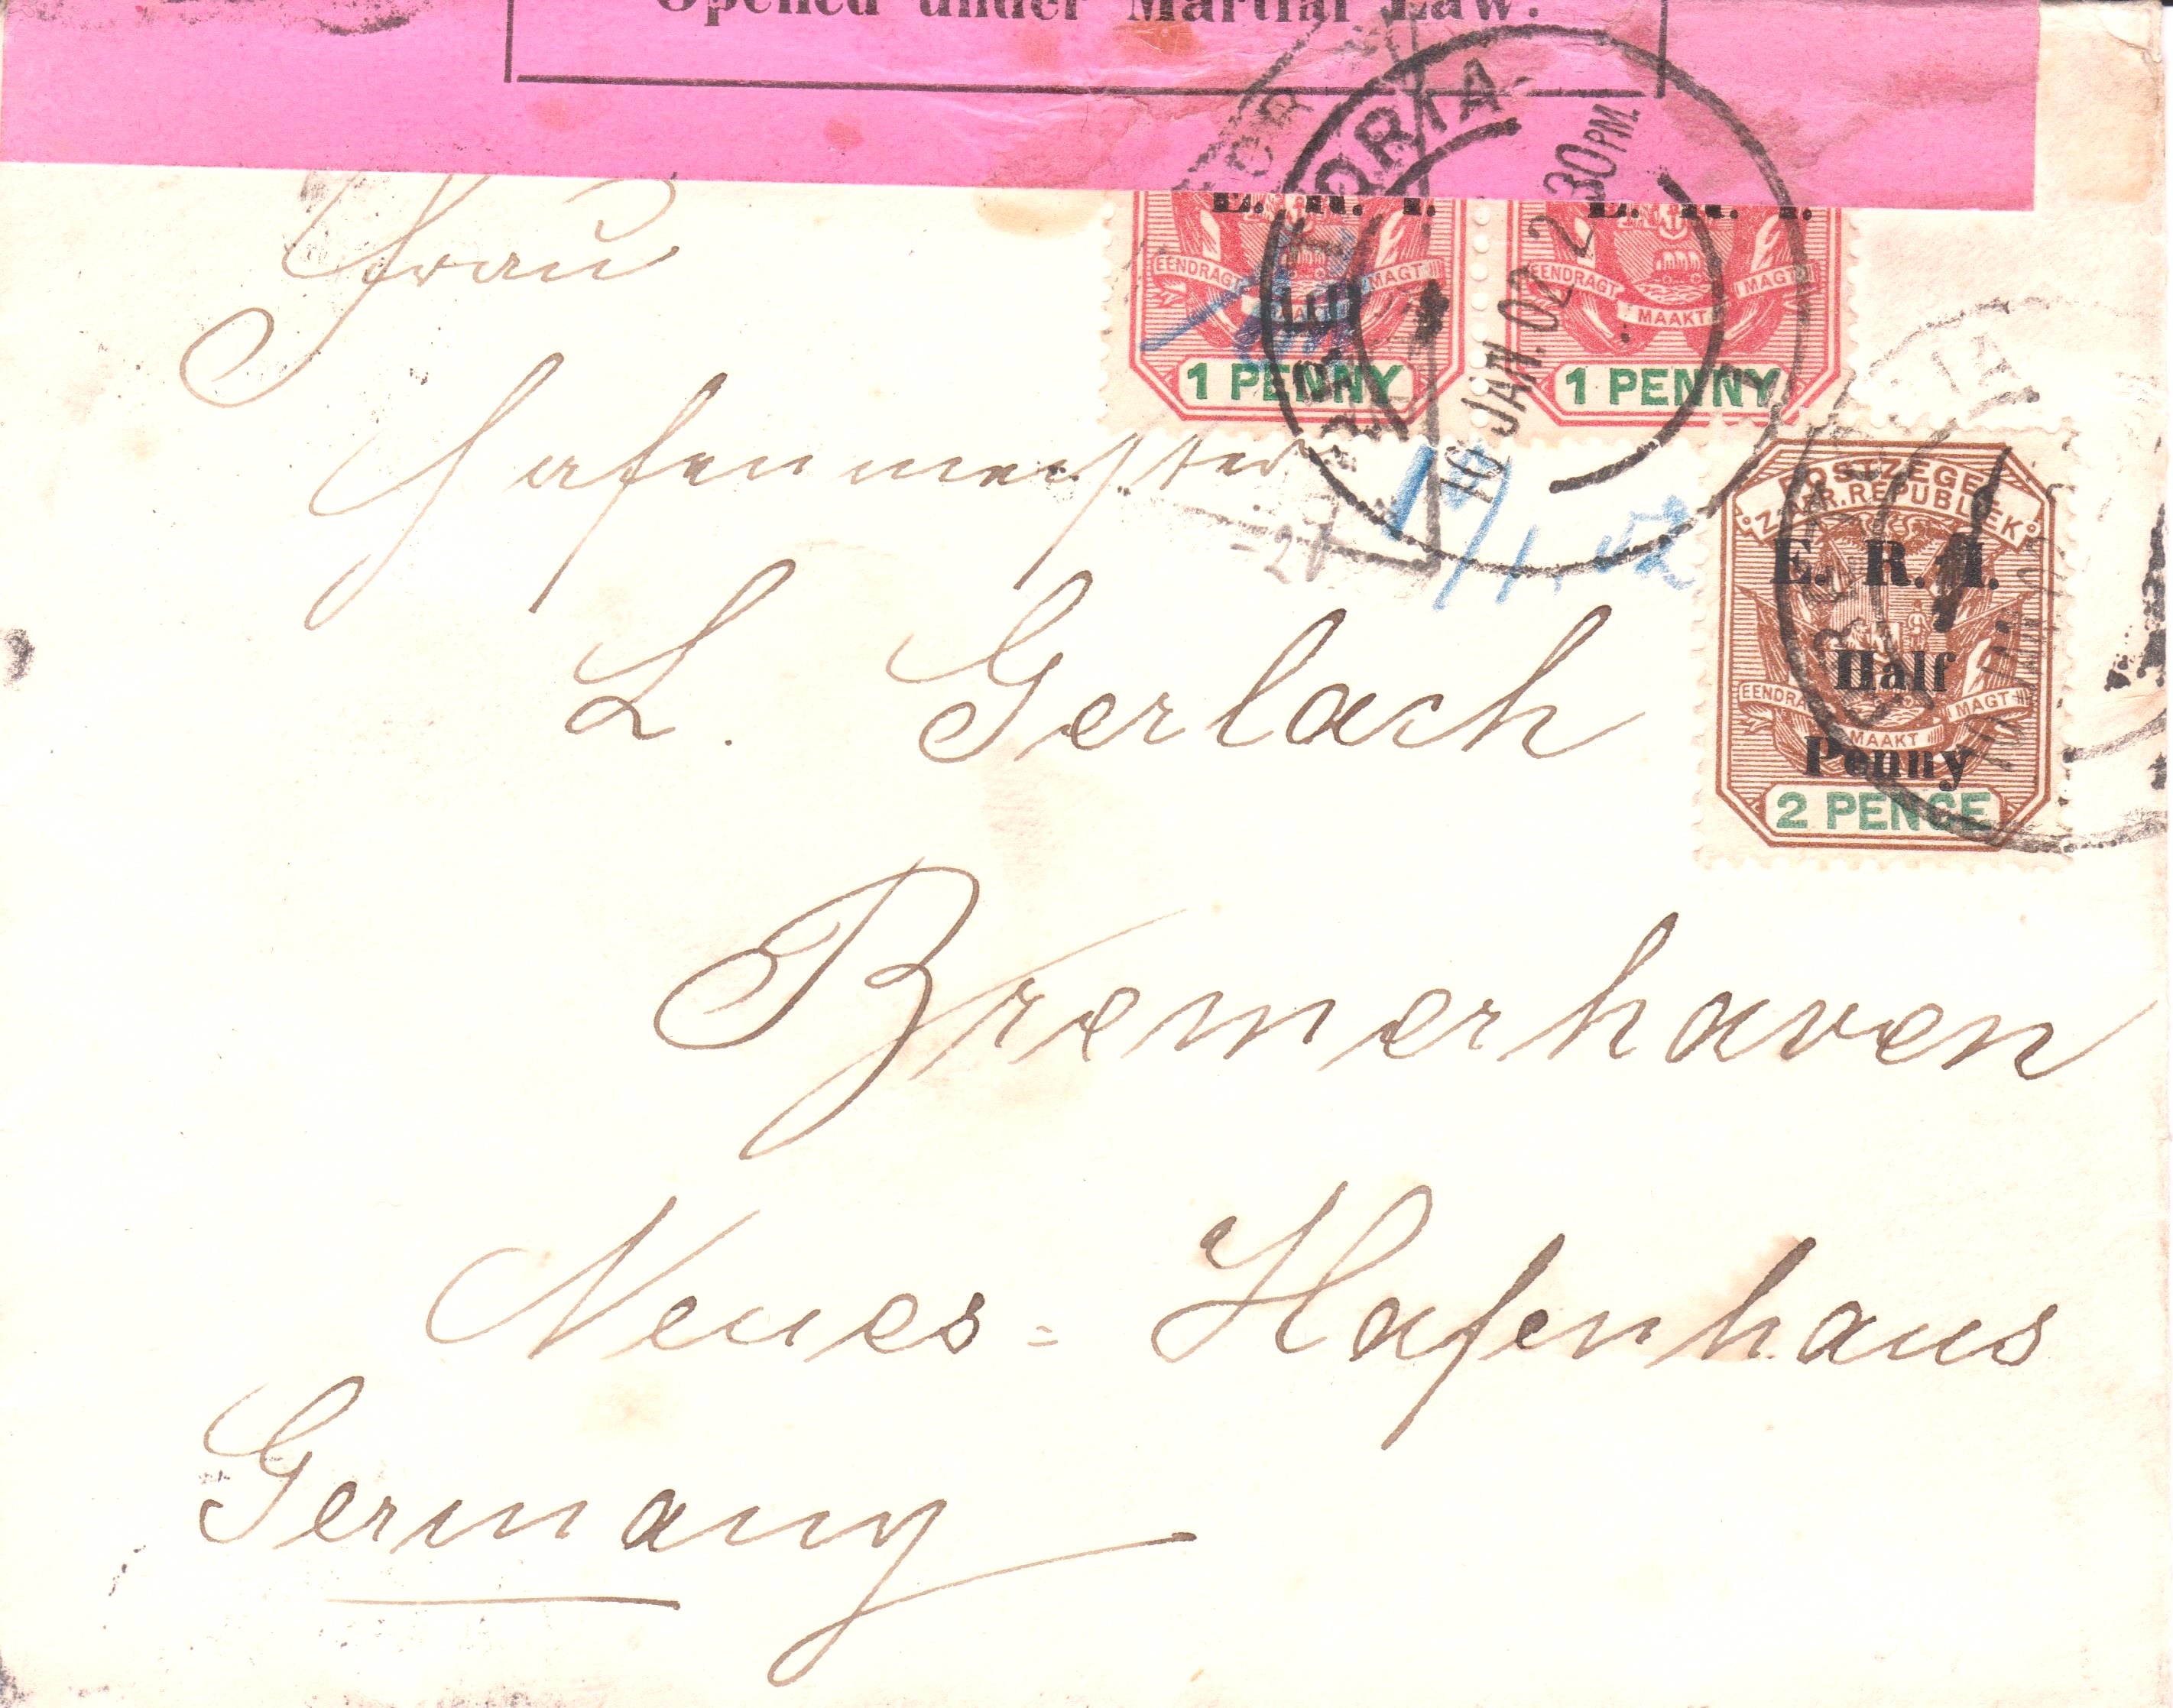 Opened under Martial Law.
PRETORIA
10 JAN. 02 2 30 PM.
E. R. I.
EENDRAGT MAAKT MAGT
1 PENNY
E. R. I.
EENDRAGT MAAKT MAGT
1 PENNY
10/1.02
POSTZEGEL
Z. AFR. REPUBLIEK
E. R. I.
Half
Penny
EENDRAGT MAAKT MAGT
2 PENCE
Frau
Hafenmeister
L. Gerlach
Bremerhaven
Neues = Hafenhaus
Germany